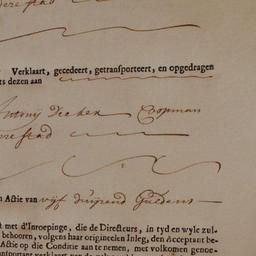 deze stad
Verklaart, gecedeert, getransporteert, en opgedragen
ts dezen aan
Antony Decker Coopman
deze stad
n Actie van vijf duijzend Guldens
t met d'Inroepinge, die de Directeurs, in tyd en wyle zul-
behooren, volgens haar origineelen Inleg, den Acceptant be-
Actie op die Conditie aan te nemen, met volkomen genoe-